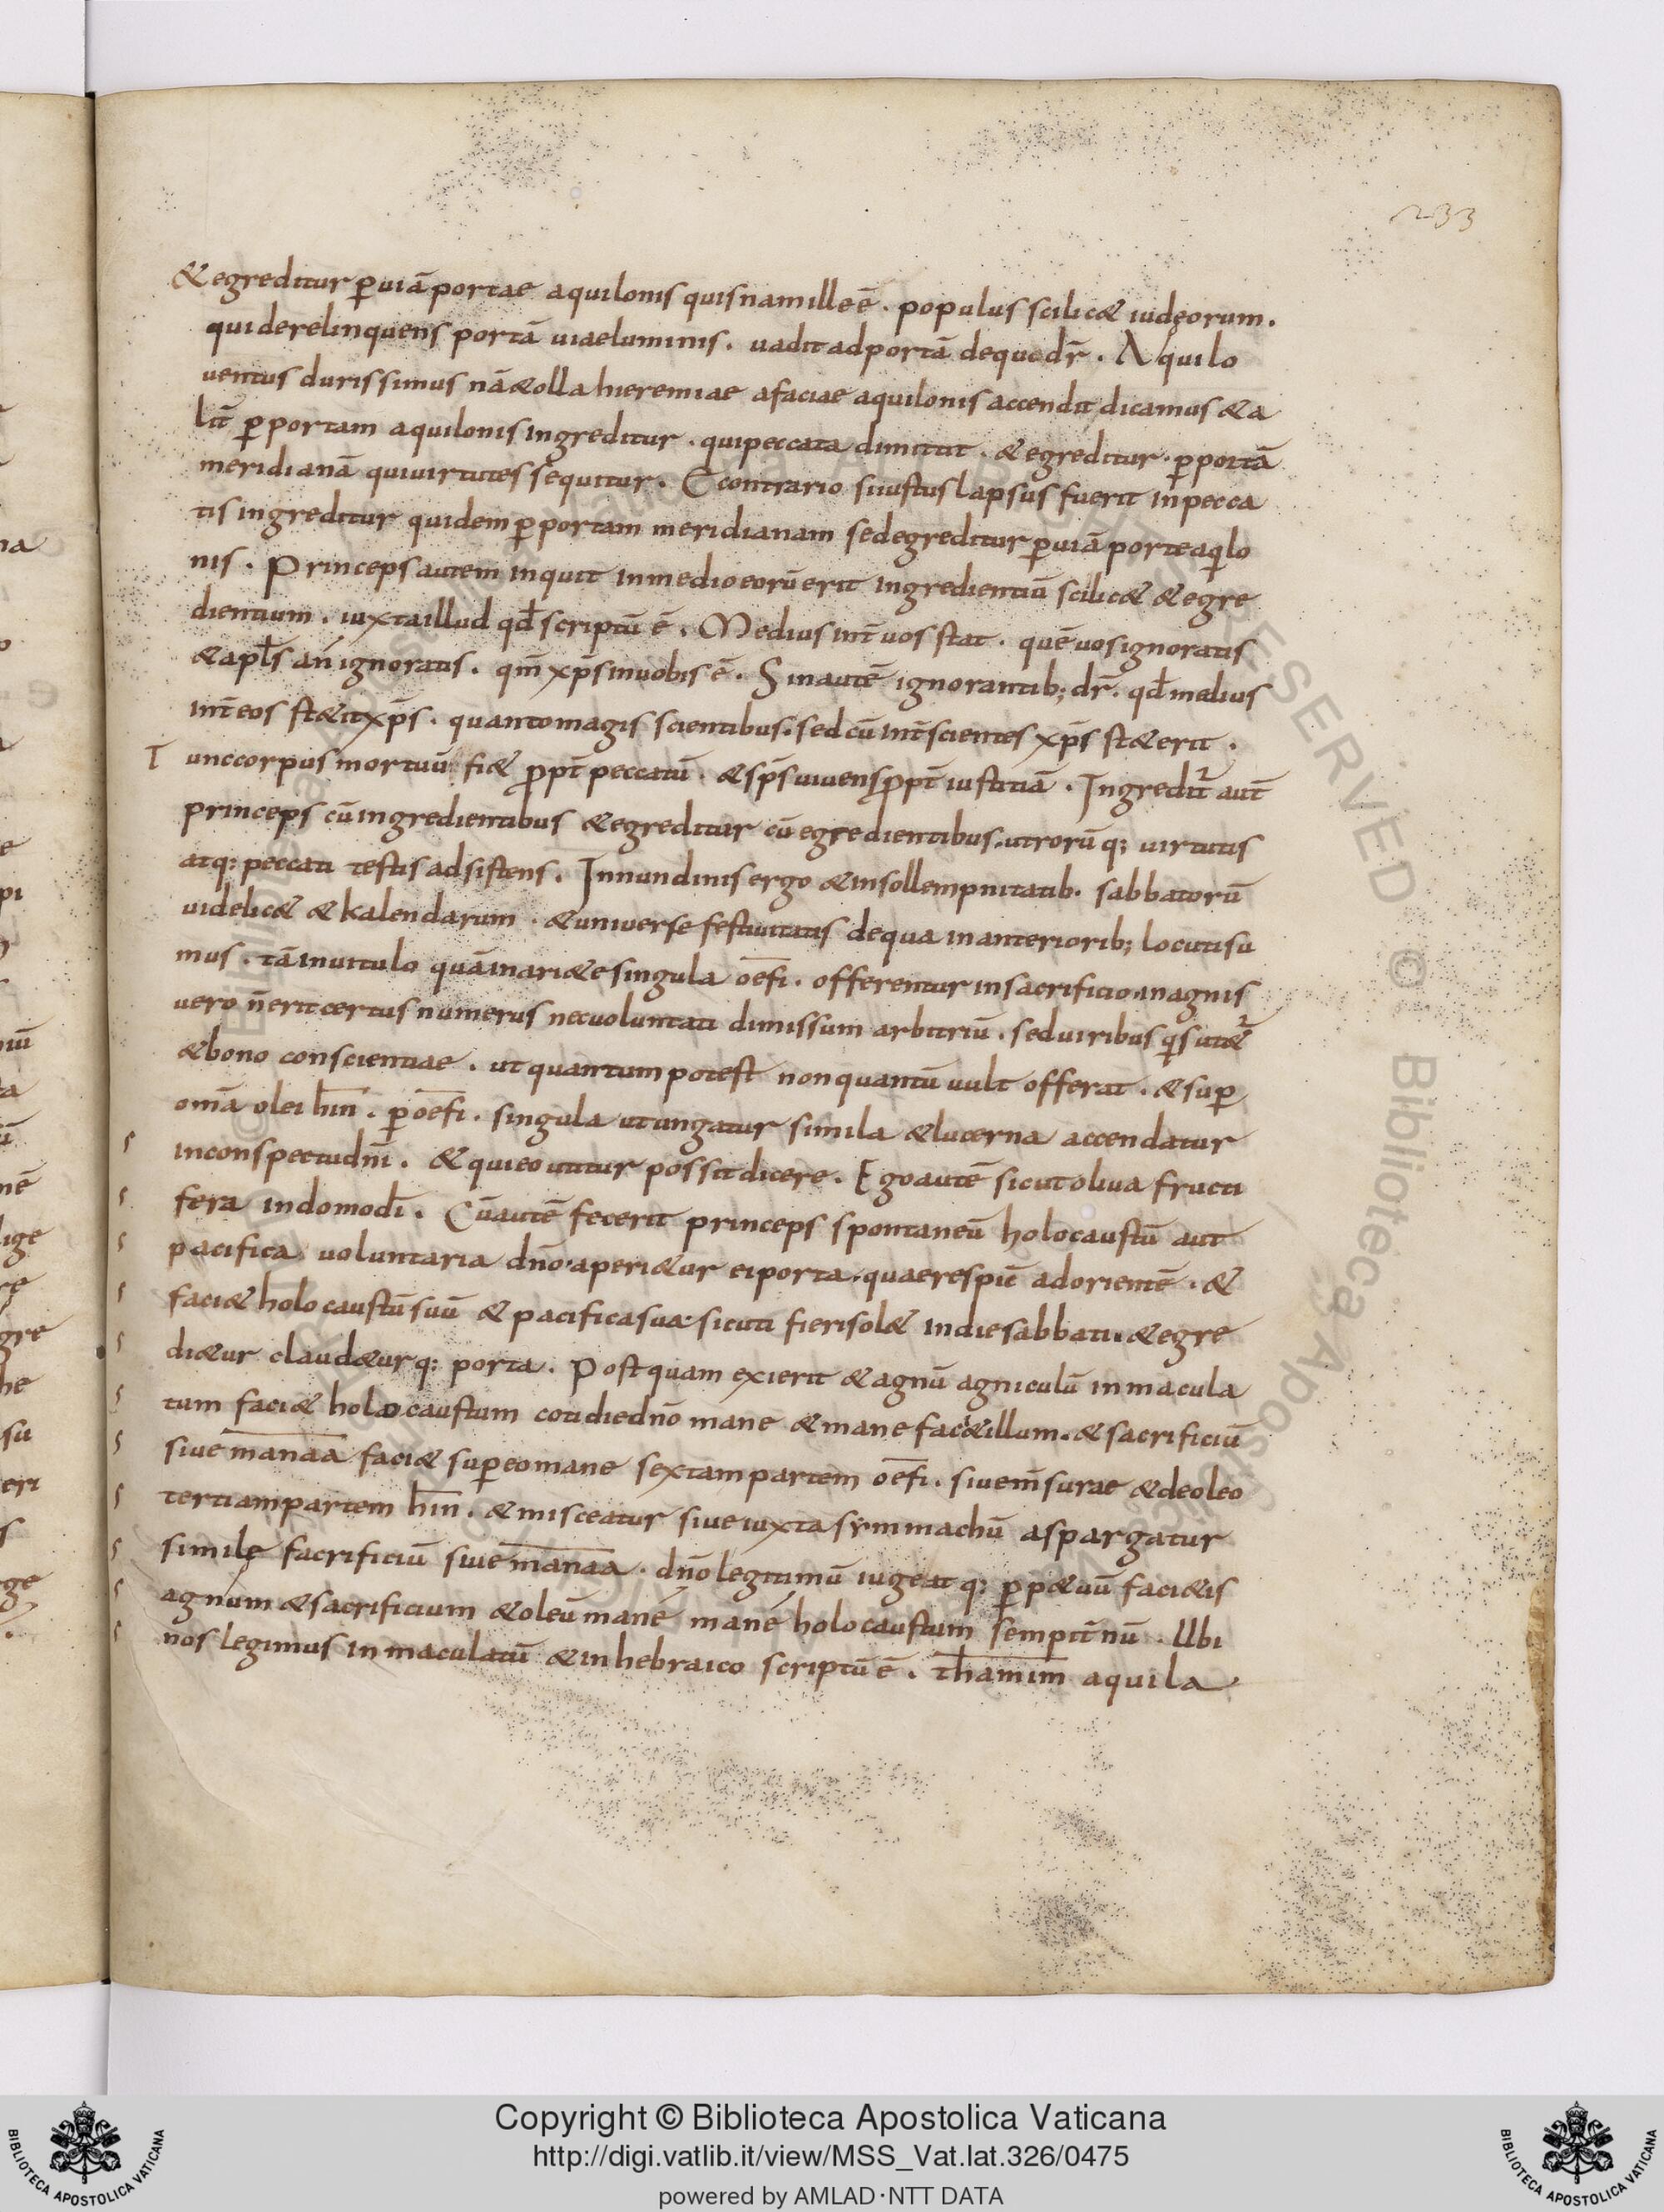 233
& egreditur ꝑ uiā portae aquilonis quisnam ille ē. populus scilic& iudęorum.
qui derelinquens portā uiae luminis. uadit ad portā de qua dr̄. Aquilo
uentus durissimus nā & olla hieremiae a faciae aquilonis accendit dicamus & a
lit̄ ꝑ portam aquilonis ingreditur. qui peccata dimittit. & egreditur. ꝑ portā
meridianā qui uirtutes sequitur. E contrario si iustus lapsus fuerit in pecca
tis ingreditur quidem ꝑ portam meridianam sed egreditur ꝑ uiā porte aqilo
nis. Princeps autem inquit in medio eorū erit ingredientiū scilic& & egre
dientium. iuxta illud qđ scriptū ē. Medius int̄ uos stat. quē uos ignoratis
& apl̄s an ignoratis. qm̄ xp̄s in uobis ē. Sin autē ignorantib; dr̄. qđ melius
int̄ eos st&it xp̄s. quanto magis scientibus. sed cū int̄ scientes xp̄s st&erit.
Tunc corpus mortuū fi& ꝓpt̄ peccatū. & sp̄s uiuens ꝓpt̄ iustitiā. Ingredit̄ aut̄
princeps cū ingredientibus & egreditur cū egredientibus. utrorūq; uirtutis
atq; peccati testis adsistens. In nundinis ergo & in sollempnitatib. sabbatorū
uidelic& & kalendarum. & uniuerse festiuitatis de qua in anteriorib; locuti su
mus. tā in uitulo quā in ari&e singula oēfi. offerentur in sacrificio. in agnis
uero n̄ erit certus numerus nec uoluntati dimissum arbitriū. sed uiribus qis utet̄
& bono conscientiae. ut quantum potest non quantū uult offerat. & suꝑ
omā olei hin. ꝑ oēfi. singula ut ungatur simila & lucerna accendatur
in conspectu dn̄i. & qui eo utitur possit dicere. Ego autē sicut oliua fructi
fera in domo dī. Cū autē fecerit princeps spontaneū holocaustū aut
pacifica uoluntaria dn̄o. aperi&ur ei porta. quae respic̄ ad orientē. &
faci& holocaustū suū & pacifica sua. sicuti fieri sol& in die sabbati. & egre
di&ur claud&urq; porta. Postquam exierit & agnū agniculū inmacula
tum faci& holocaustum cotidie dn̄o mane & mane faci& illum. & sacrificiū
siue manaa faci& suꝑ eo mane sextam partem oēfi. siue m̄surae & de oleo
tertiam partem hin. & misceatur siue iuxta symmachū aspargatur
simile sacrificiū siue manaa. dn̄o legitimū iuge atq; ꝑp&uū faci&is
agnum & sacrificium & oleū mane mane holocaustum sempit̄nū. Ubi
nos legimus inmaculatū & in hebraico scriptū ē. thamim aquila
Copyright © Biblioteca Apostolica Vaticana
http://digi.vatlib.it/view/MSS_Vat.lat.326/0475
powered by AMLAD·NTT DATA
BIBLIOTECA APOSTOLICA VATICANA
BIBLIOTECA APOSTOLICA VATICANA